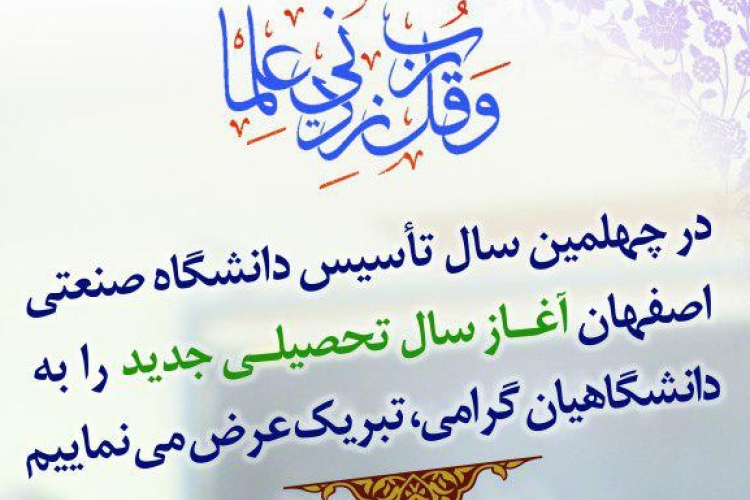 وَقُل رَبِّ زِدْنِي عِلْمًا
در چهلمین سال تأسیس دانشگاه صنعتی
اصفهان آغاز سال تحصیلی جدید را به
دانشگاهیان گرامی، تبریک عرض می نماییم